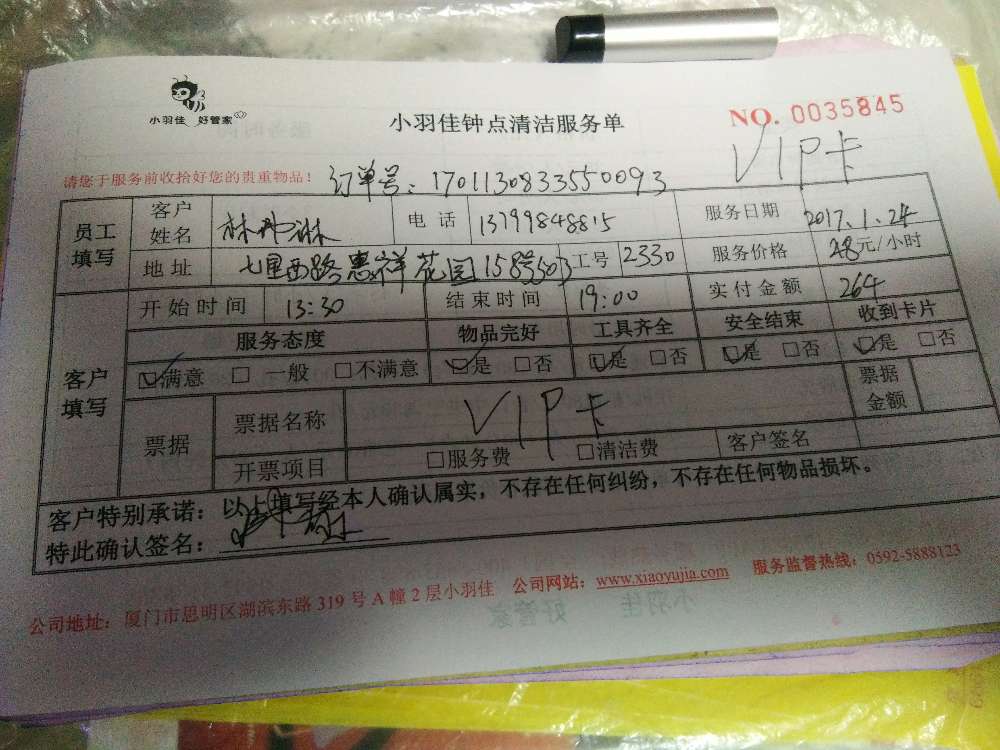 小羽佳 好管家
小羽佳钟点清洁服务单
NO. 0035845
VIP卡
请您于服务前收拾好您的贵重物品！ 订单号：1701130833550093
员工填写 客户姓名 林 琳 电话 13799848815 服务日期 2017.1.24
地址 七里西路惠祥花园158号503 工号 2330 服务价格 元/小时
开始时间 13:30 结束时间 19:00 实付金额 264
客户填写 服务态度 物品完好 工具齐全 安全结束 收到卡片
☑满意 □一般 □不满意 ☑是 □否 ☑是 □否 ☑是 □否 ☑是 □否
票据 票据名称 VIP卡 票据金额
开票项目 □服务费 □清洁费 客户签名
客户特别承诺：以上填写经本人确认属实，不存在任何纠纷，不存在任何物品损坏。
特此确认签名：
公司地址：厦门市思明区湖滨东路 319 号 A 幢 2 层小羽佳 公司网站：www.xiaoyujia.com 服务监督热线：0592-5888123